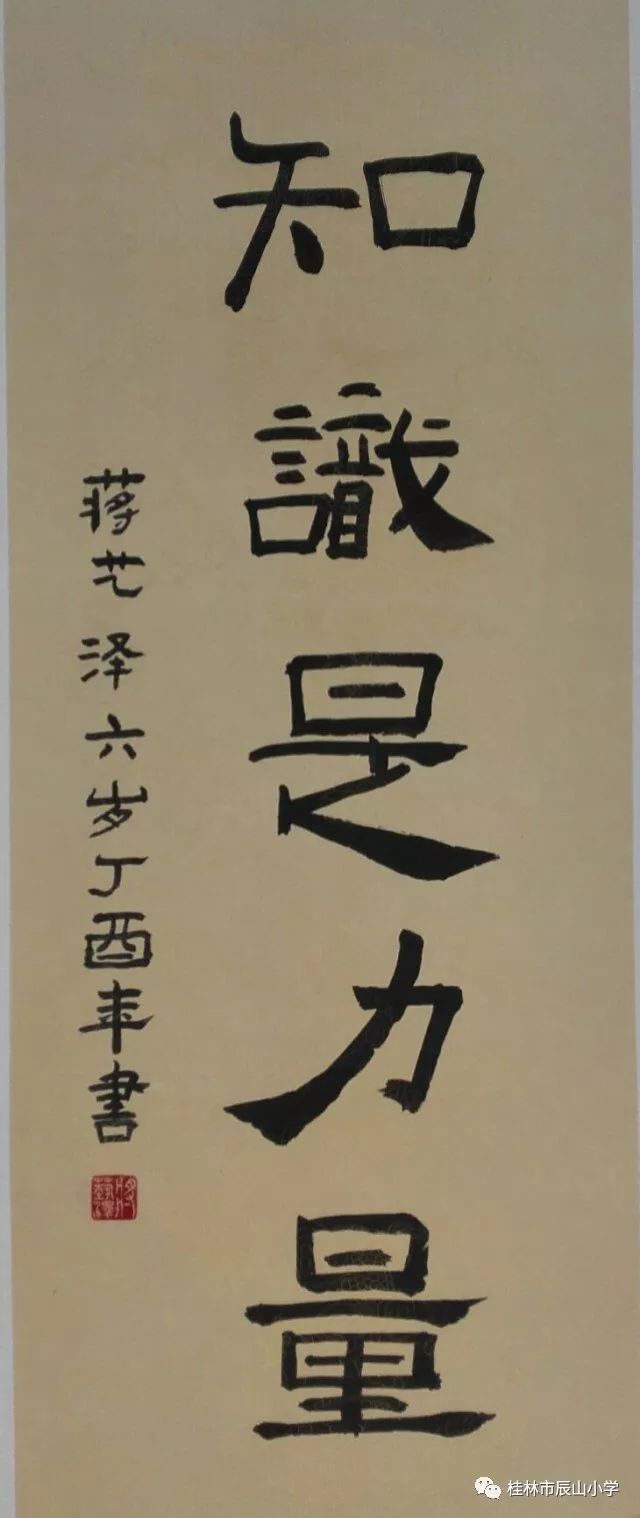 知識是力量
蒋艺泽六岁丁酉年書
桂林市辰山小学